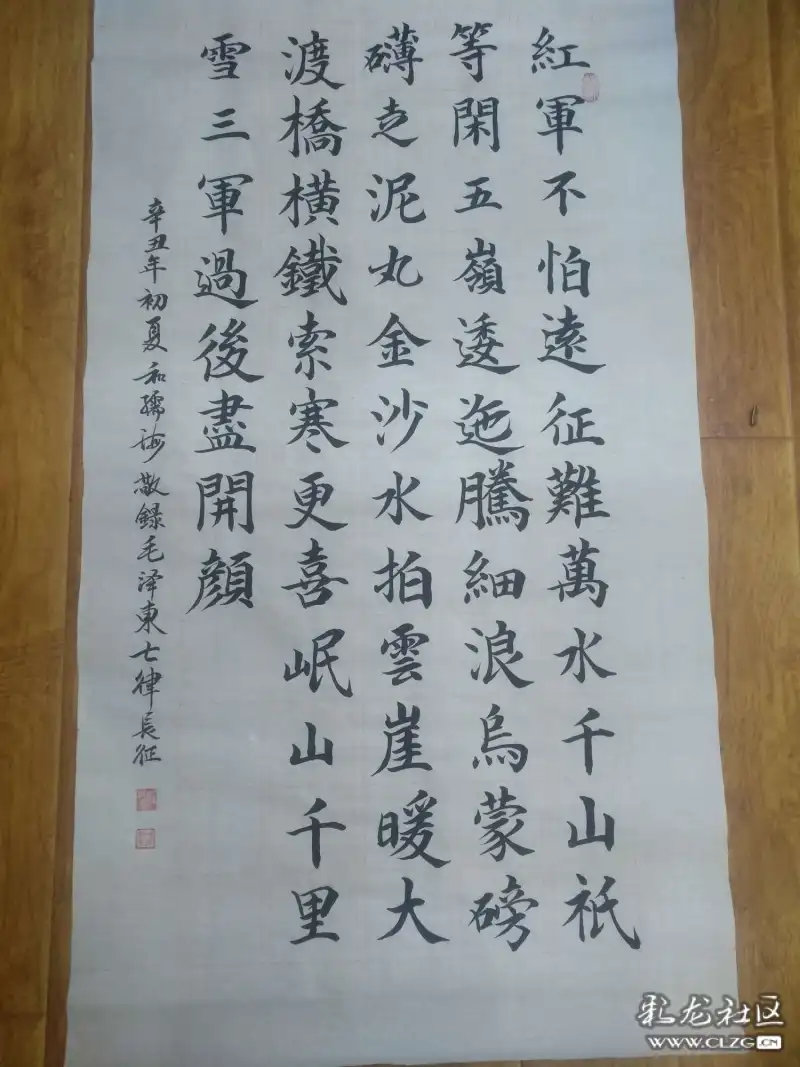 紅軍不怕遠征難萬水千山祇
等閑五嶺逶迤騰細浪烏蒙磅
礴走泥丸金沙水拍雲崖暖大
渡橋橫鐵索寒更喜岷山千里
雪三軍過後盡開顔
辛丑年初夏和孺海敬録毛泽東七律長征
彩龙社区
WWW.CLZG.CN